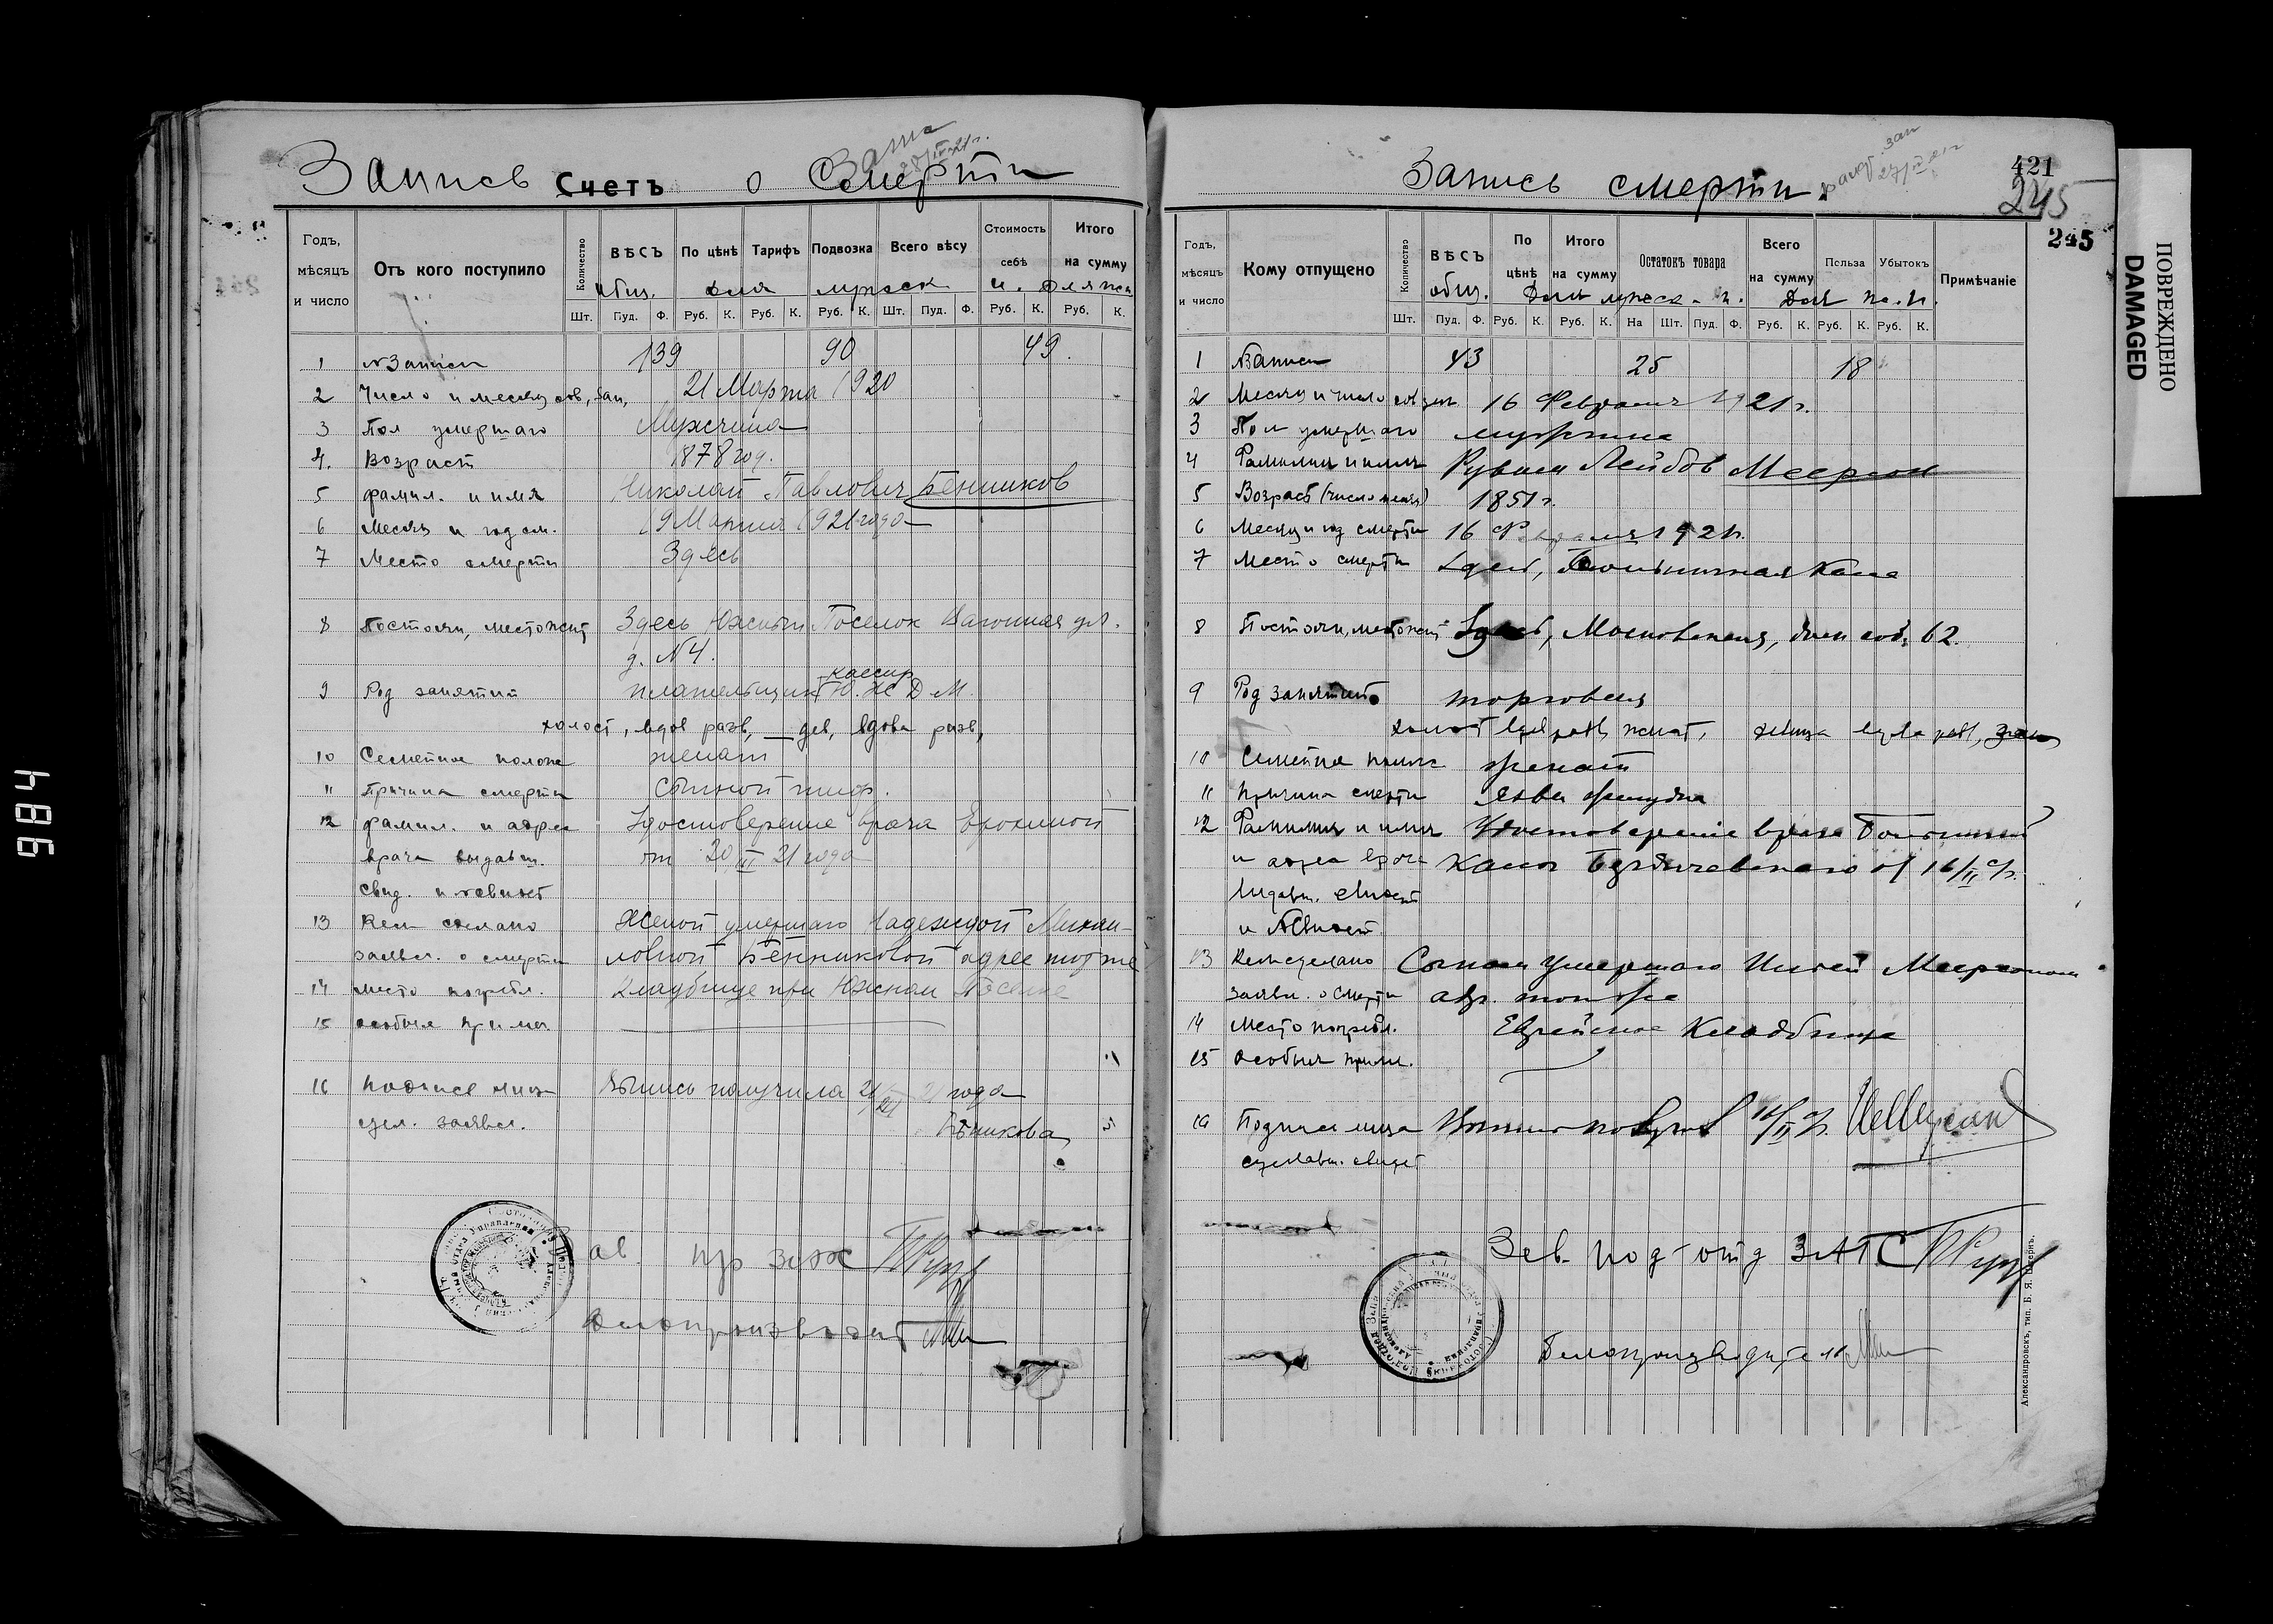 Запись Счетъ о Смерти
Годъ, мѣсяцъ и число
Отъ кого поступило
Количество
ВѢСЪ
По цѣнѣ
Тарифъ
Подвозка
Всего вѣсу
Стоимость себѣ
Итого на сумму
общ. для мужск и. для жен
Шт. Пуд. Ф. Руб. К. Руб. К. Руб. К. Шт. Пуд. Ф. Руб. К. Руб. К.
1 №Записи 139 90 49.
2 Число и месяц сов, зап, 21 Марта 1920
3 Пол умершаго Мужчина
4. Возраст 1878 год.
5 фамил. и имя Николай Павлович Бенников
6 Месяц и год см. 19 Марта 1921 года
7 Место смерти Здесь
8 Постоян, местожит Здесь Южный Поселок Вагонная ул.
д. №4.
кассир
9 Род занятий плательщик Ю. Ж Д М.
холост, вдов разв, дев, вдова разв,
10 Семейное полож женат
11 Причина смерти Сыпной тиф.
12 фамил. и адрес Удостоверение врача Ерохиной
врача выдавш. от 20/III 21 года
свид. и №свидет
13 Кем сделано Женой умершаго Надеждой Михай-
заявл. о смерти ловной Бенниковой адрес тотже
14 Место погребл. Кладбище при Южном Поселке
15 особыя примеч.
16 подпись лица Выпись получила 21/III 21 года
сдел. заявл. Бѣникова
Делопроизводит
Запись смерти.
421
245
245
Годъ, мѣсяцъ и число
Кому отпущено
Количество
ВѢСЪ
По цѣнѣ
Итого на сумму
Остатокъ товара
Всего на сумму
Польза
Убытокъ
Примѣчаніе
общ. Для мужск. п. Для ж. п.
Шт. Пуд. Ф. Руб. К. Руб. К. На Шт. Пуд. Ф. Руб. К. Руб. К. Руб. К.
1 №Записи 43 25 18
2 Месяц и число сов зап 16 Февраля 1921 г.
3 Пол умершаго мужчина
4 Фамилия и имя Рувим Лейбов Меерсон
5 Возраст (число месяц) 1851 г.
6 Месяц и год смерти 16 Февраля 1921 г.
7 Место смерти Здесь, Больничная Касса
8 Постоян, местожит Здесь, Московская, дом соб. 62.
9 Род занятий торговля
холост вдов разв, женат, девица вдова разв, зам
10 Семейное полож женат
11 Причина смерти язва желудка
12 Фамилия и имя Удостоверение врача Больничной
и адрес врача Кассы Бердичевского от 16/II с/г.
выдавш. свидет
и №Свидет.
13 Кем сделано Сыном умершаго Исаем Меерсоном
заявл. о смерти адр. тот же
14 Место погребл. Еврейское Кладбище
15 особыя прим.
16 Подпись лица Выпись получил 16/II с/г.
сделавш. свидет
Зав. под-отд ЗАГС
Делопроизводитель
Александровскъ, тип. Б. Я. Штернъ.
ПОВРЕЖДЕНО
DAMAGED
486